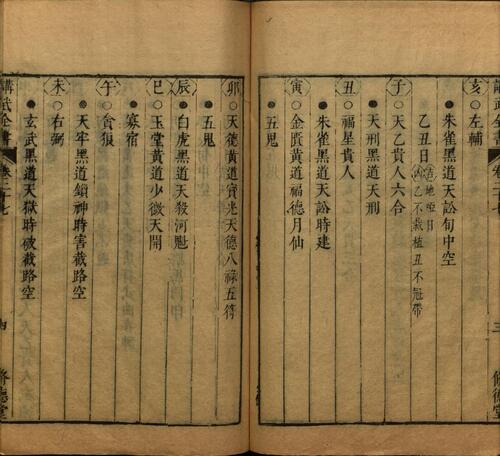 亥○左輔
●朱雀黑道天訟旬中空
乙丑日 吉地啞日
凶乙不栽植丑不冠帶
子○天乙貴人六合
●天刑黑道天刑
丑○福星貴人
●朱雀黑道天訟時建
寅○金匱黃道福德月仙
●五鬼
卯○天德黃道寶光天德八祿五符
●五鬼
辰●白虎黑道天殺河魁
巳○玉堂黃道少微天開
●寡宿
午○貪狼
●天牢黑道鎖神時害截路空
未○右弼
●玄武黑道天獄時破截路空
講武全書 卷二十七 四 修德堂